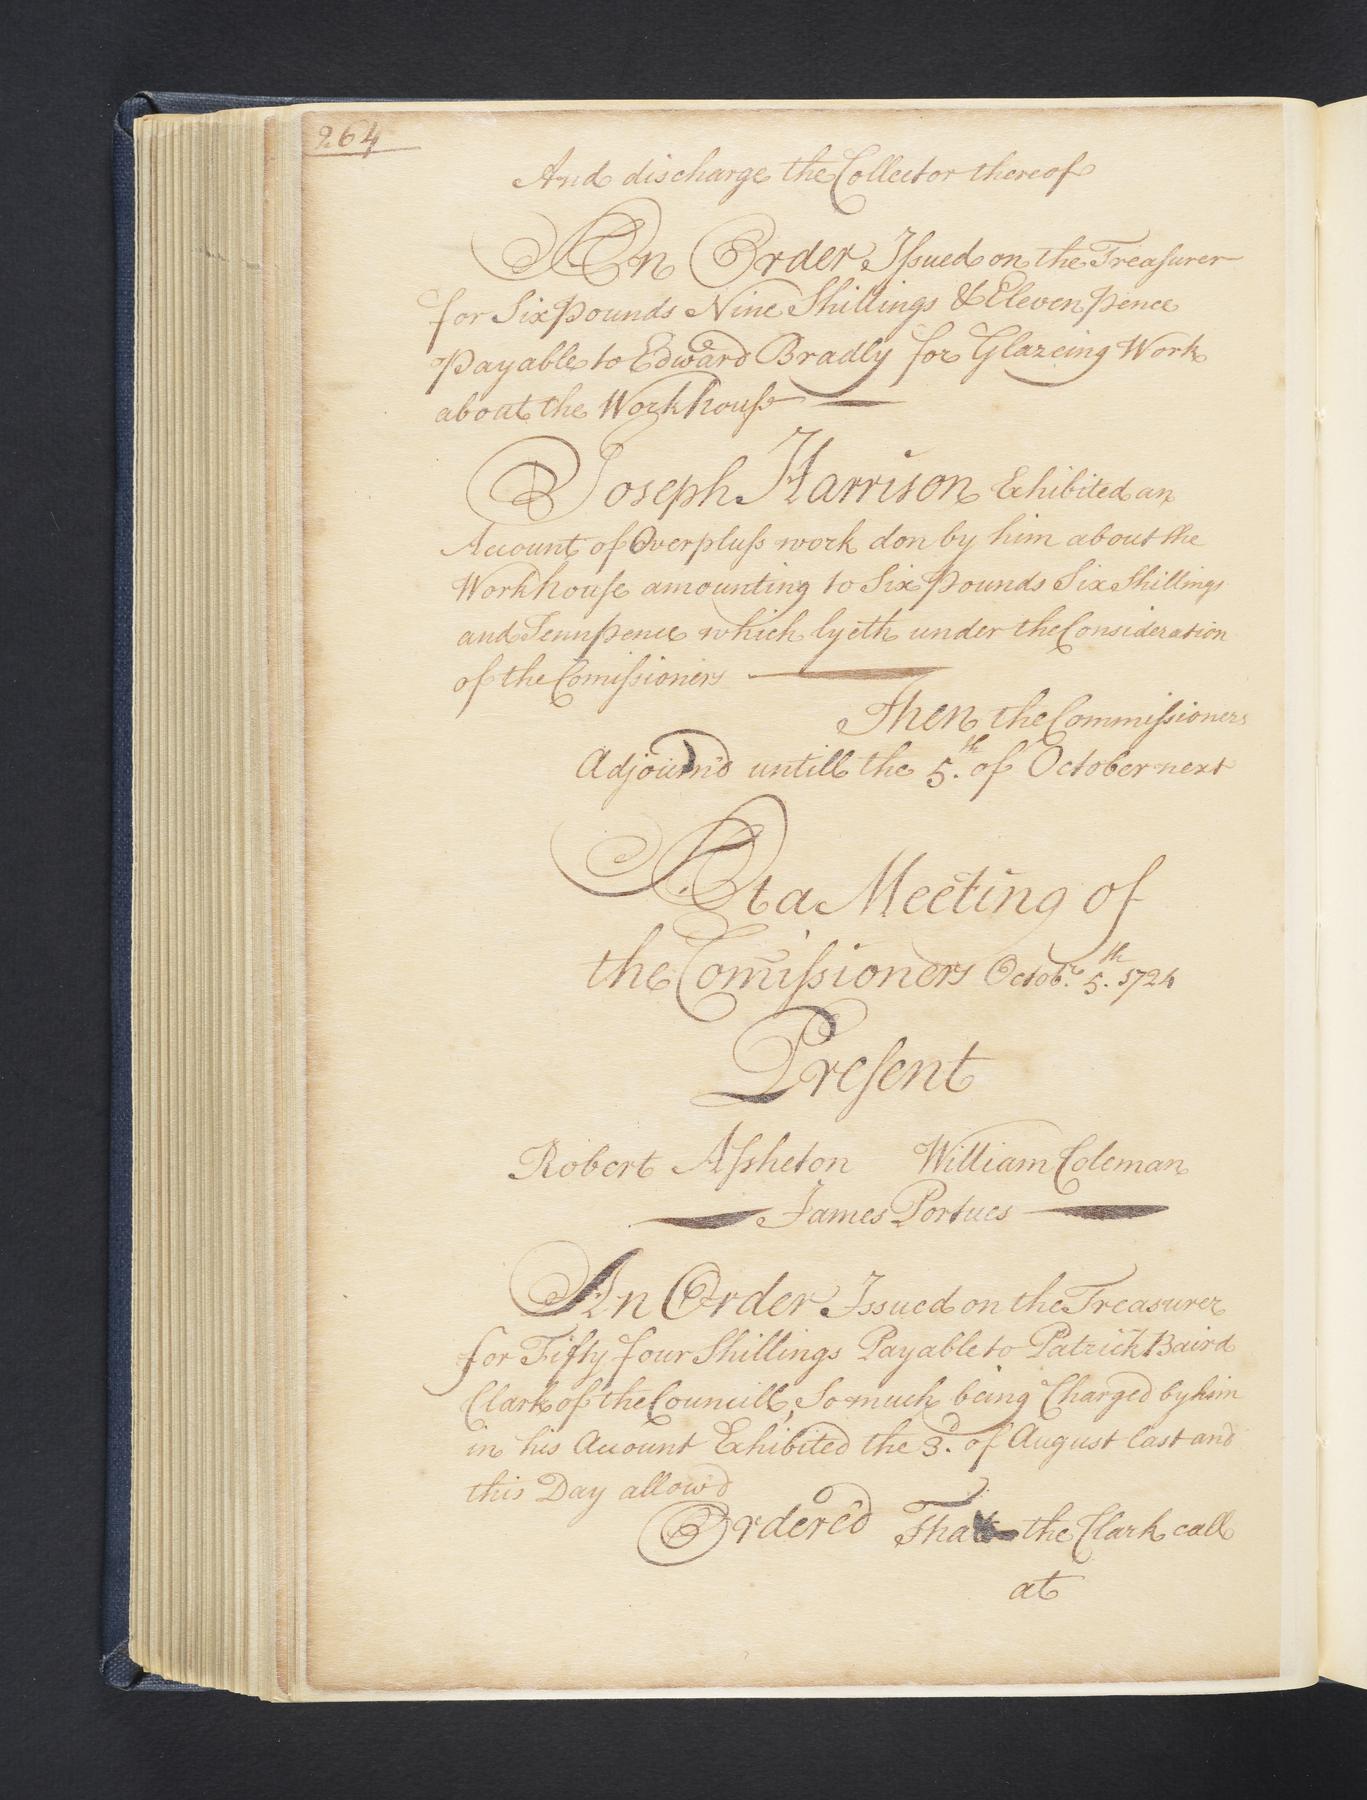 264
And discharge the Collector thereof
An Order Issued on the Treasurer
for Six pounds Nine Shillings & Eleven pence
Payable to Edward Bradly for Glazeing Work
about the Workhouse
Joseph Harrison Exhibited an
Account of Overpluss work don by him about the
Workhouse amounting to Six pounds Six Shillings
and Tennpence which lyeth under the Consideration
of the Comissioners
Then the Commissioners
Adjourn'd untill the 5.th of October next
At a Meeting of
the Comissioners Octobr. 5.th 1724
Present
Robert Assheton William Coleman
James Portues
An Order Issued on the Treasurer
for Fifty four Shillings Payable to Patrick Baird
Clark of the Councill, So much being Charged by him
in his Account Exhibited the 3.d of August last and
this Day allow'd
Ordered That the Clark call
at